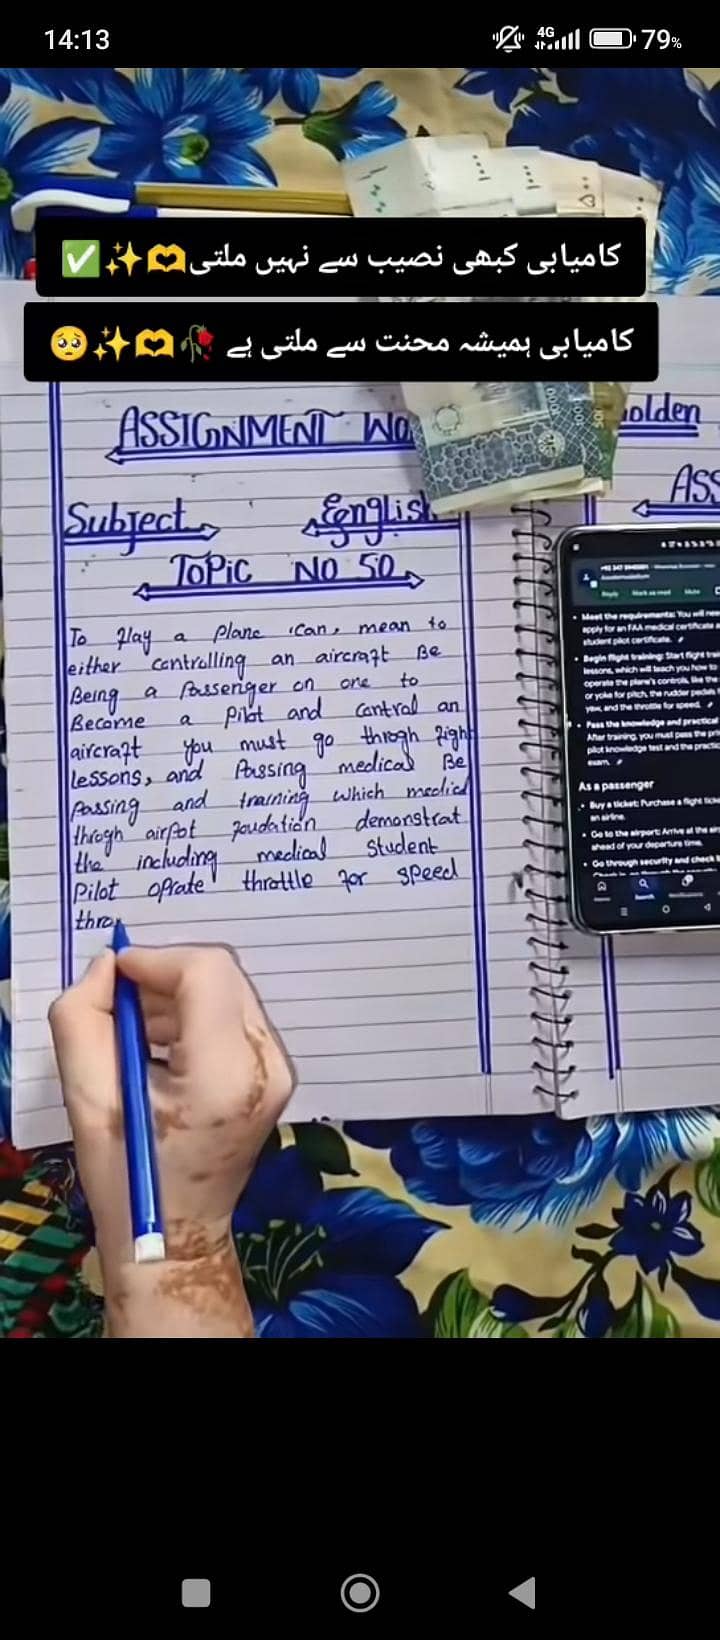 14:13
4G
79%
کامیابی کبھی نصیب سے نہیں ملتی🫶✨✅
کامیابی ہمیشہ محنت سے ملتی ہے 🥀🫶✨🥺
ASSIGNMENT WO
Subject English
Topic NO 50
To Play a Plane Can, mean to
either controlling an aircraft Be
Being a Passenger on one to
Become a Pilot and Contral an
aircraft you must go throgh fligh
lessons, and Passing medical Be
Passing and training which medicl
throgh airpot foudation demonstrat
the including medical Student
Pilot oprate throttle for speed
thro
olden
ASS
Reply Mark as read Mute
Meet the requirements: You will nee
apply for an FAA medical certificate a
student pilot certificate.
Begin flight training: Start flight trai
lessons, which will teach you how to
operate the plane's controls, like the
or yoke for pitch, the rudder pedals
yaw, and the throttle for speed.
Pass the knowledge and practical
After training, you must pass the pri
pilot knowledge test and the practic
exam.
As a passenger
Buy a ticket: Purchase a flight ticke
an airline.
Go to the airport: Arrive at the air
ahead of your departure time.
Go through security and check i